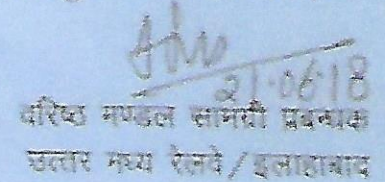 21.06.18
वरिष्ठ मण्डल सामग्री प्रबन्धक
उत्तर मध्य रेलवे/इलाहाबाद